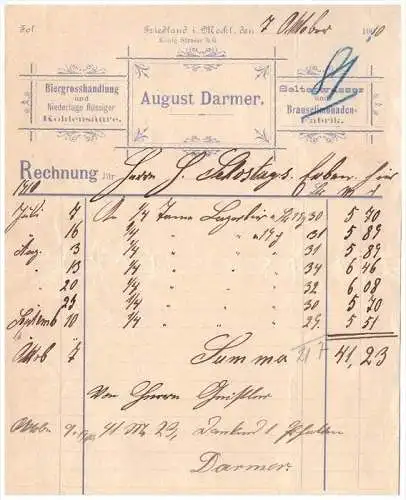 Fol.
Friedland i. Meckl. den 7 Oktober 1910
König Strasse
Biergrosshandlung
und
Niederlage flüssiger
Kohlensäure.
August Darmer.
Selterwasser
und
Brauselimonaden-
Fabrik.
Rechnung für Herrn hier
1910 M
Juli 7 An 1/4 Tonne Lagerbier a 30 5 70
" 16 " 1/4 " " a 19 31 5 89
Aug. 3 " 1/4 " " " 31 5 89
" 13 " 1/4 " " " 34 6 46
" 20 " 1/4 " " " 32 6 08
" 25 " 1/4 " " " 30 5 70
Septemb 10 " 1/4 " " " 29 5 51
Oktob 7 Summa 217 41,23
Von Herrn
Oktober 41 M 23, Dankend erhalten
Darmer.